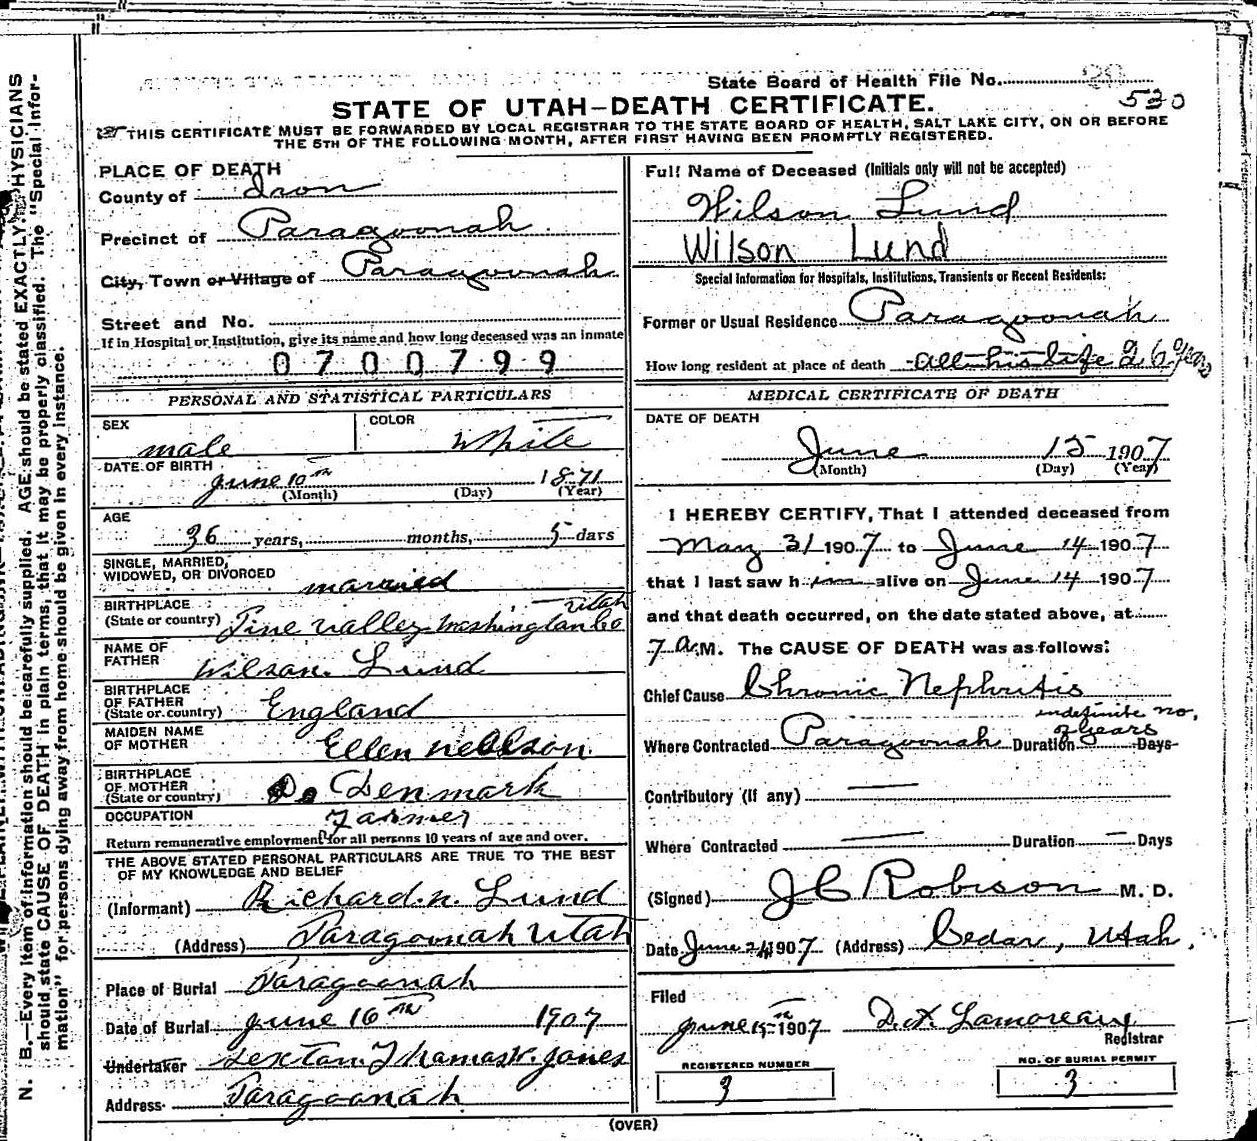 State Board of Health File No. 20
530
STATE OF UTAH—DEATH CERTIFICATE.
THIS CERTIFICATE MUST BE FORWARDED BY LOCAL REGISTRAR TO THE STATE BOARD OF HEALTH, SALT LAKE CITY, ON OR BEFORE
THE 5TH OF THE FOLLOWING MONTH, AFTER FIRST HAVING BEEN PROMPTLY REGISTERED.
PLACE OF DEATH
County of Iron
Precinct of Paragoonah.
City, Town or Village of Paragoonah
Street and No.
If in Hospital or Institution, give its name and how long deceased was an inmate
0700799
PERSONAL AND STATISTICAL PARTICULARS
SEX male
COLOR White
DATE OF BIRTH
June 10th 1871
(Month) (Day) (Year)
AGE
36 years, months, 5 days
SINGLE, MARRIED,
WIDOWED, OR DIVORCED married
BIRTHPLACE Utah
(State or country) Pine Valley Washington Co
NAME OF
FATHER Wilson Lund
BIRTHPLACE
OF FATHER
(State or country) England
MAIDEN NAME
OF MOTHER Ellen Nellson.
BIRTHPLACE
OF MOTHER
(State or country) Do Denmark
OCCUPATION Farmer
Return remunerative employment for all persons 10 years of age and over.
THE ABOVE STATED PERSONAL PARTICULARS ARE TRUE TO THE BEST
OF MY KNOWLEDGE AND BELIEF
(Informant) Richard. N. Lund
(Address) Paragoonah Utah
Place of Burial Paragoonah
Date of Burial June 16th 1907
Undertaker Sexton Thomas W. Jones
Address Paragoonah
Full Name of Deceased (Initials only will not be accepted)
Wilson Lund
Wilson Lund
Special Information for Hospitals, Institutions, Transients or Recent Residents:
Former or Usual Residence Paragoonah
How long resident at place of death all his life 26 years
MEDICAL CERTIFICATE OF DEATH
DATE OF DEATH
June 15 1907
(Month) (Day) (Year)
I HEREBY CERTIFY, That I attended deceased from
May 31 1907 to June 14 1907
that I last saw him alive on June 14 1907
and that death occurred, on the date stated above, at
7 A.M. The CAUSE OF DEATH was as follows:
Chief Cause Chronic Nephritis
indefinite no.
of years
Where Contracted Paragoonah Duration Days
Contributory (If any) —
Where Contracted — Duration — Days
(Signed) J C Robison M. D.
Date June 24 1907 (Address) Cedar, Utah.
Filed
June 15th 1907 Registrar
REGISTERED NUMBER
3
NO. OF BURIAL PERMIT
3
(OVER)
N. B.—Every item of information should be carefully supplied. AGE should be stated EXACTLY. PHYSICIANS
should state CAUSE OF DEATH in plain terms, that it may be properly classified. The "Special Infor-
mation" for persons dying away from home should be given in every instance.